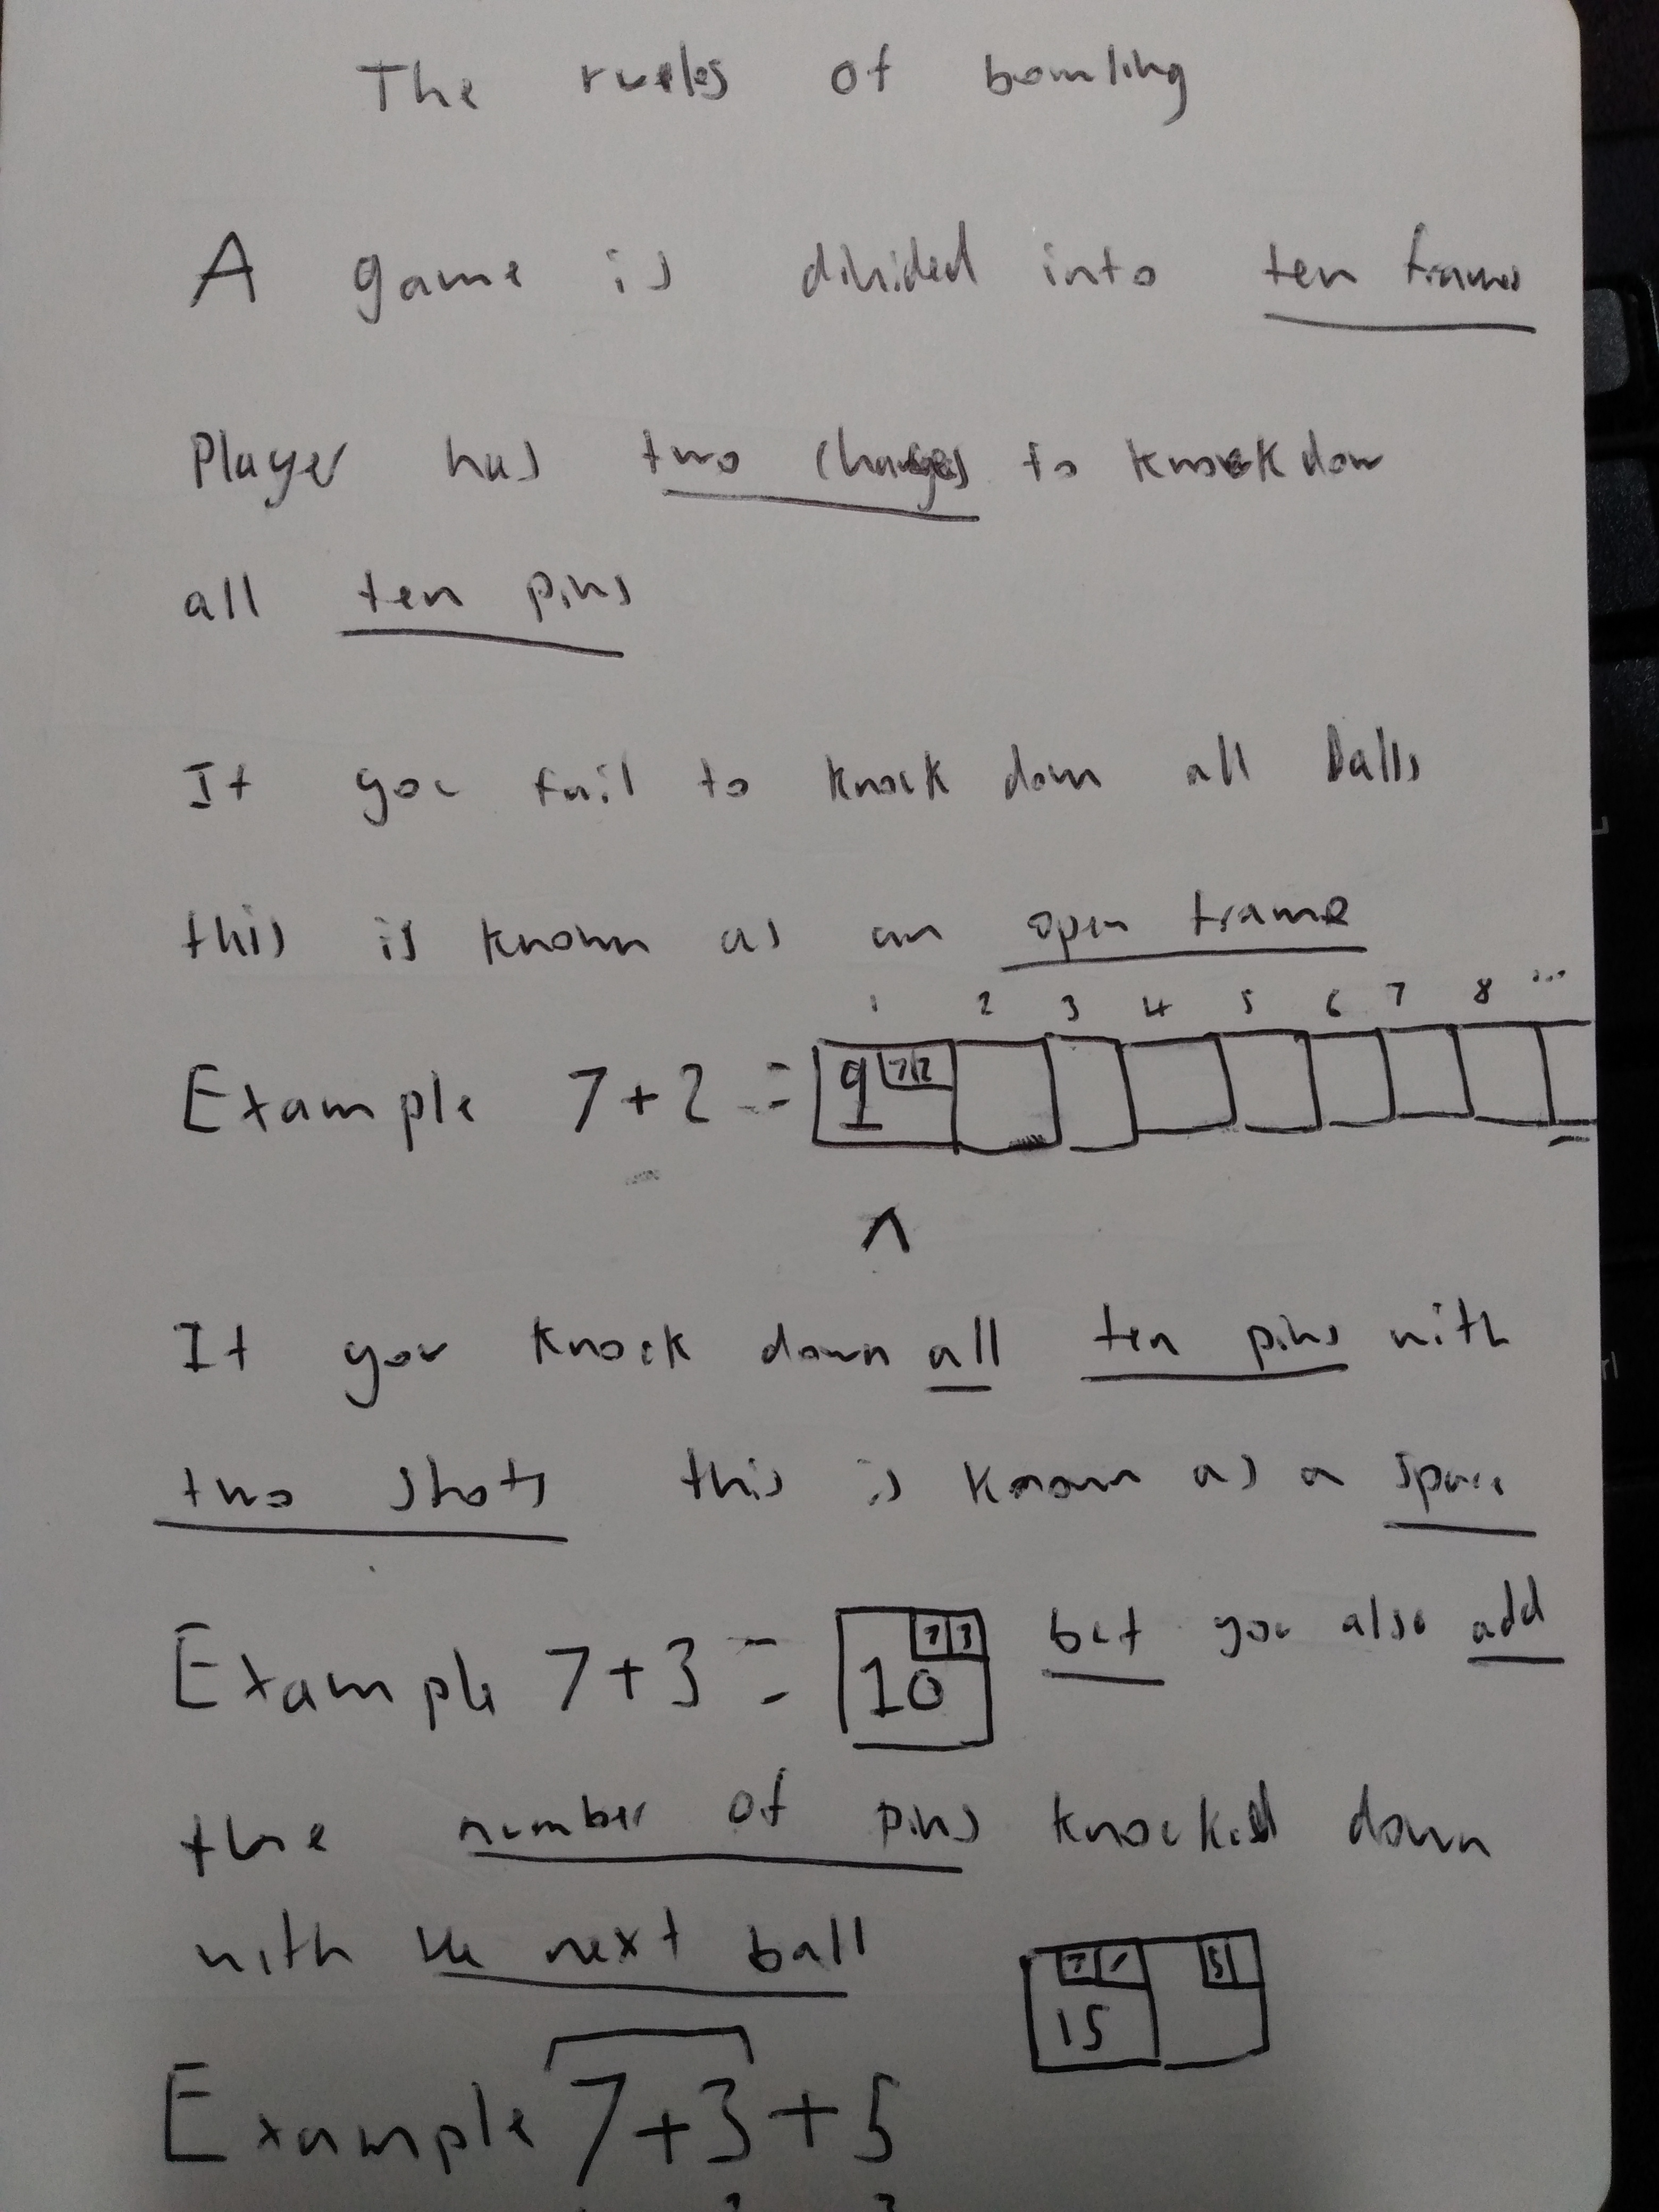 The rules of bowling
A game is divided into ten frames
Player has two changes to knock dow
all ten pins
If you fail to knock down all balls
this is known as an open frame
1 2 3 4 5 6 7 8 ...
Example 7+2 = 9 7 2
If you knock down all ten pins with
two shots this is known as a spare
Example 7+3 = 10 7 3 but you also add
the number of pins knocked down
with the next ball
7 / 5
15
Example 7+3+5